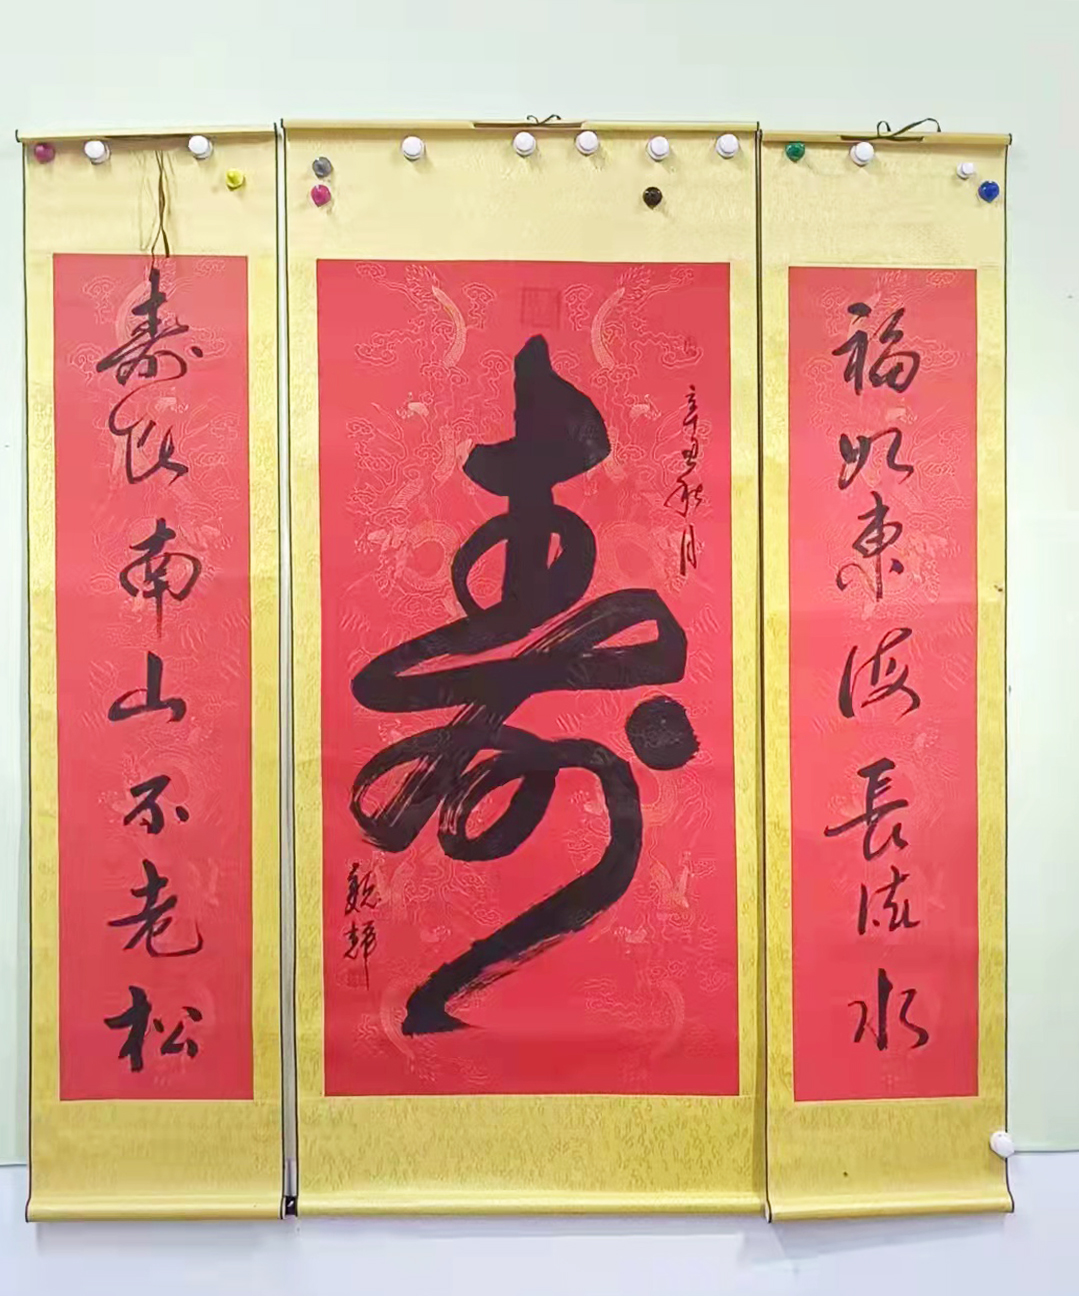 福如東海長流水
辛丑秋月
寿
寿比南山不老松